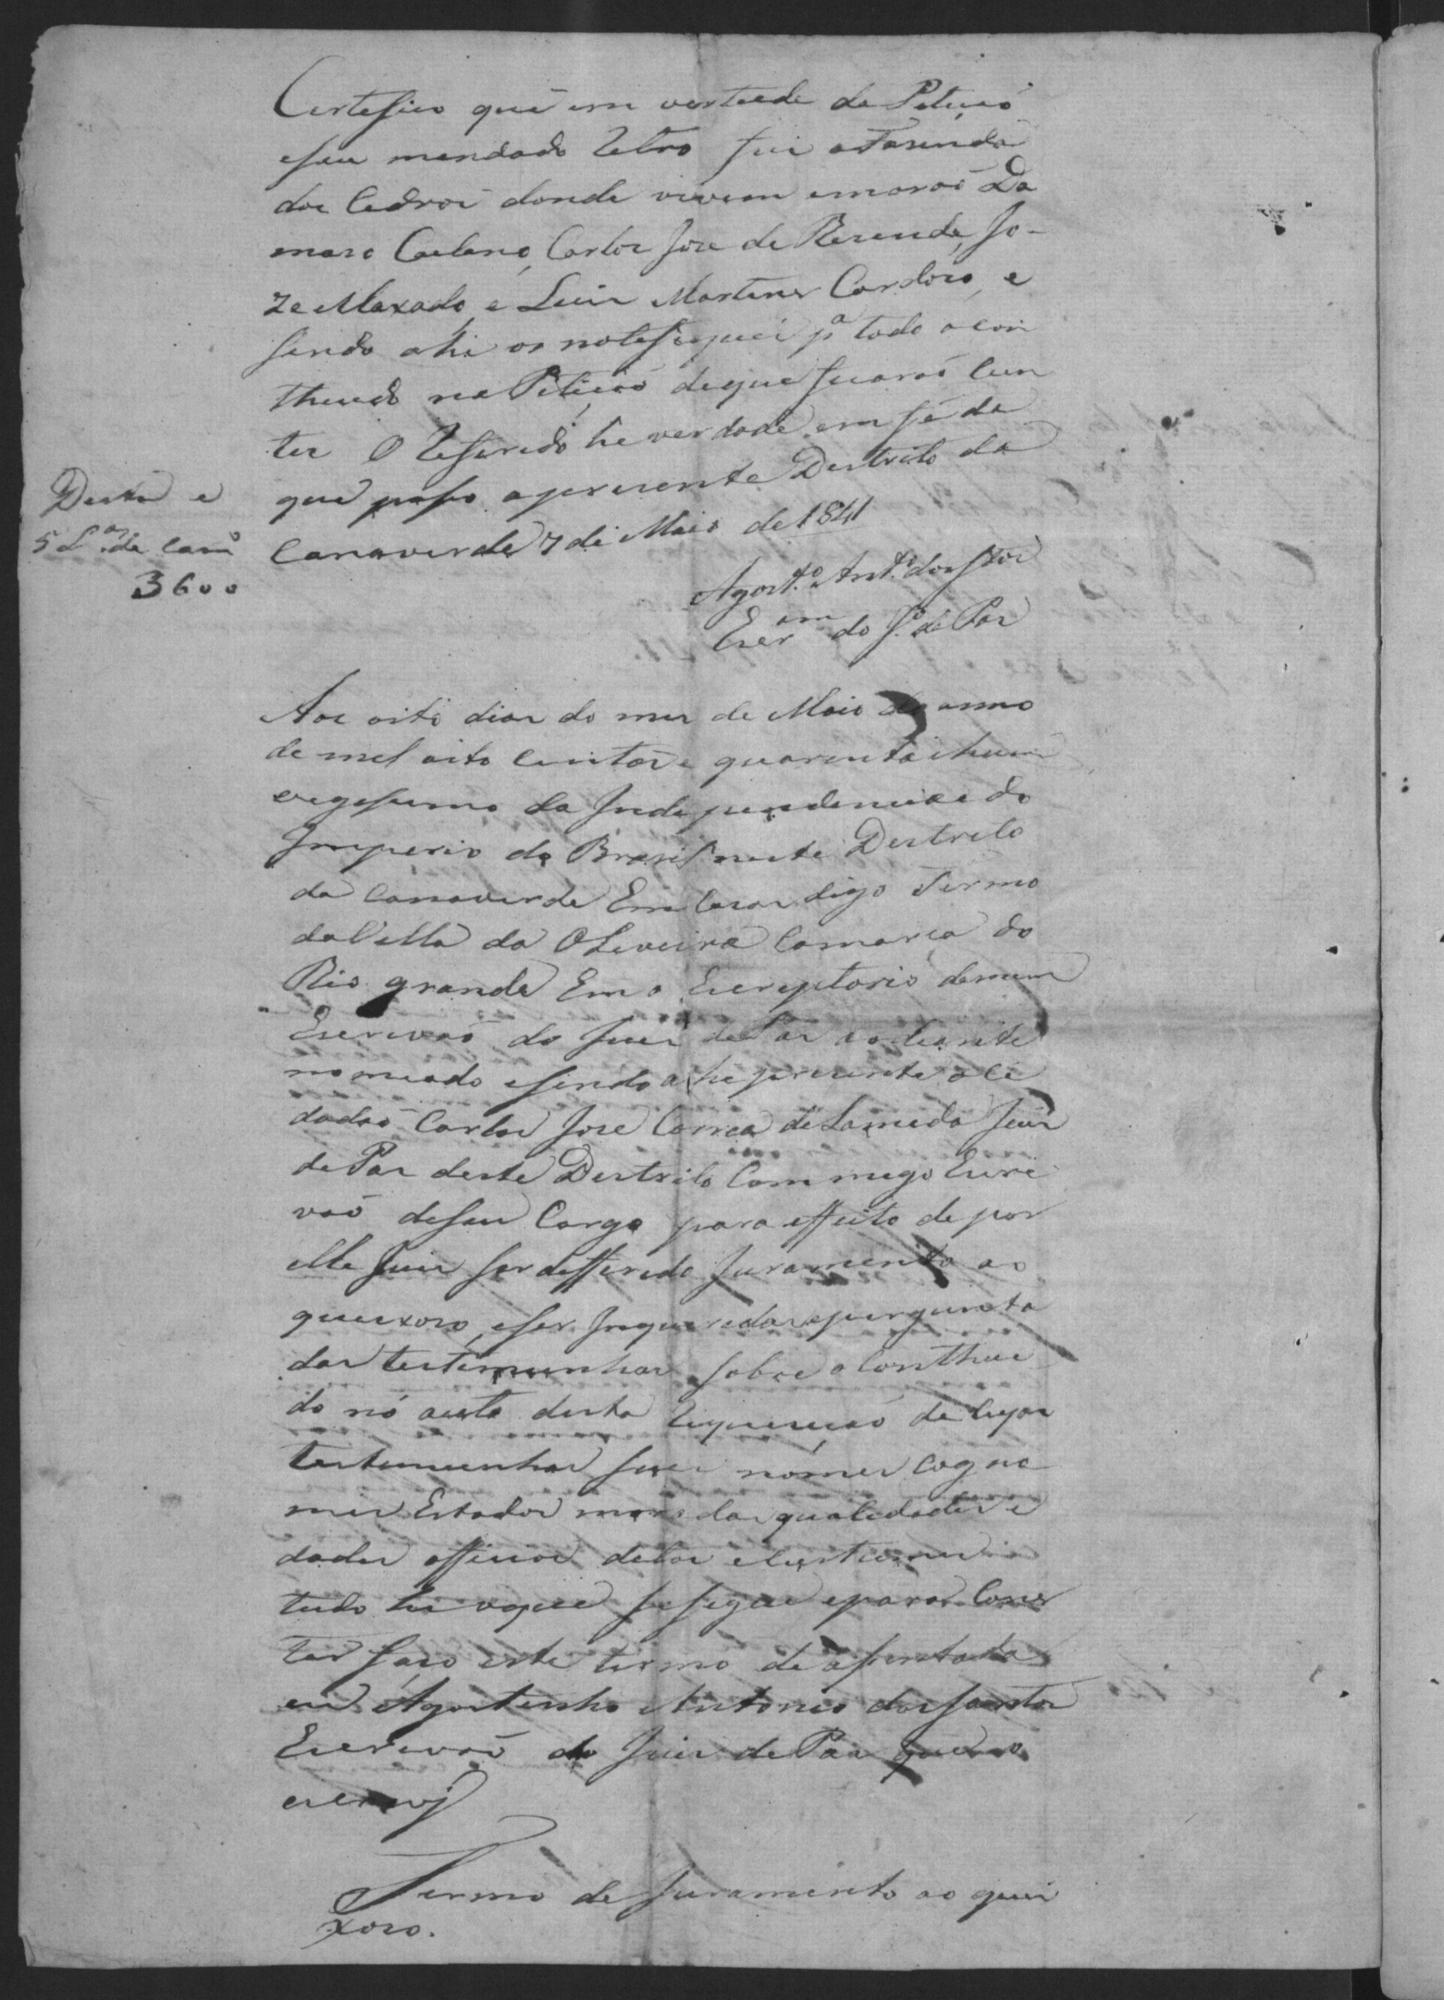 Certefico que em vertude da Petição
e seu mandado retro fui a Fasenda
dos Cedros donde vivem e morão Da
mazo Caetano, Carlos Joze de Rezende, Jo-
ze Maxado, e Luis Martins Cardozo, e
sendo ahi os notefiquei pª todo o con
theudo na Petição de que ficarão cien
tes O referido he verdade em fé do
que passo a prezente Destrito da
Canaverde 7 de Maio de 1841
Agostº Antº dos Stos
Escram do Jº de Paz
Desta e
5 Lªs de camº
3600
Aos oito dias do mes de Maio do anno
de mil oito centos e quarenta e hum
vigessimo da Independencia e do
Imperio do Brasil neste Destrito
da Canaverde Em Cazas digo Termo
da Villa da Oliveira Comarca do
Rio grande Em o Escreptorio de mim
Escrivão do Juis de Paz ao diante
nomeado e sendo ahi prezente o Ci
dadão Carlos Joze Correa de Lameda Juis
de Paz deste Destrito Com migo Escri
vão de seu Cargo para effeito de por
elle Juis ser defferido Juramento ao
queixozo, e ser Inqueridas e pergunta
das testemunhas sobre o Contheu
do nó auto desta requerição de Cujas
testemunhas seus nómes cogno
mes Estados moradas qualidades e
dades officios ditos e custumes
tudo he o que se segue e para Cons
tar faço este termo de assentada
eu Agostinho Antonio dos Santos
Escrivão do Juis de Paz que o
escrevy
Termo de Juramento ao quei
xozo.